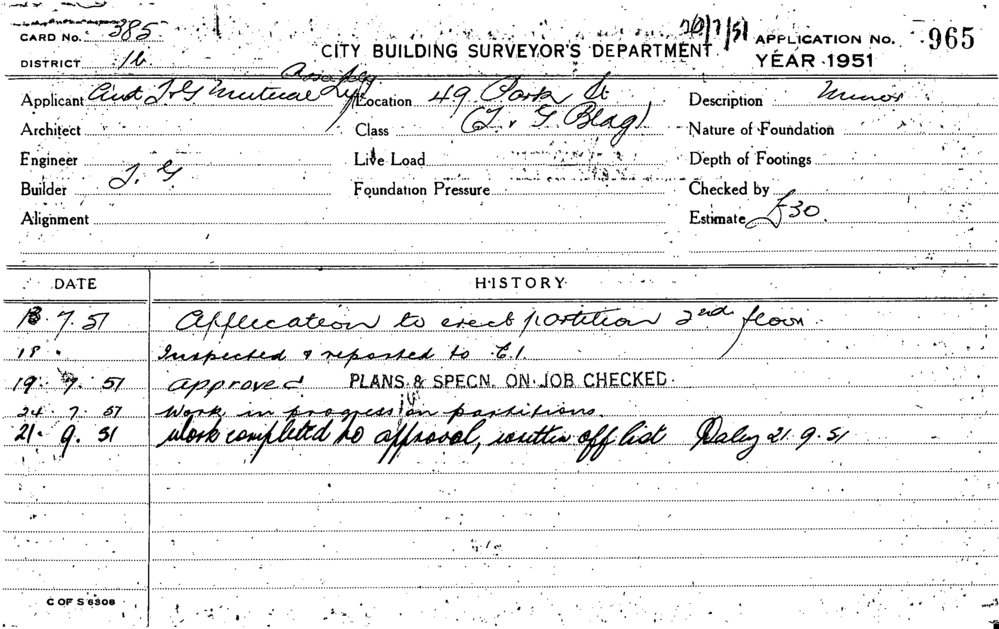 CARD No. 385
DISTRICT 16
CITY BUILDING SURVEYOR'S DEPARTMENT
20/7/51
APPLICATION No. 965
YEAR 1951
Applicant Aust T & G Mutual Life Assce
Location 49 Park St
(T & G Bldg)
Description Minor
Architect
Class
Nature of Foundation
Engineer
Live Load
Depth of Footings
Builder T. G
Foundation Pressure
Checked by
Alignment
Estimate £30.
DATE HISTORY
13.7.51 Application to erect partition 2nd floor.
18 " Inspected & reported to C.I.
19. 7. 51 Approved PLANS & SPECN. ON JOB CHECKED.
24. 7. 51 Work in progress on partitions.
21. 9. 51 Work completed to approval, written off list Daley 21.9.51
C OF S 6308